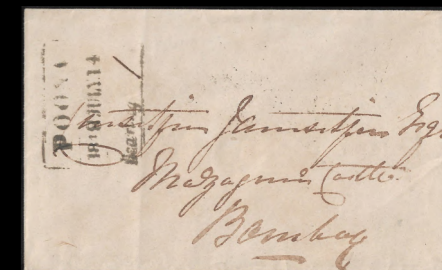 POONA
JULY 14
Bearing
Jamsetjee Esqr
Mazagon Castle
Bombay